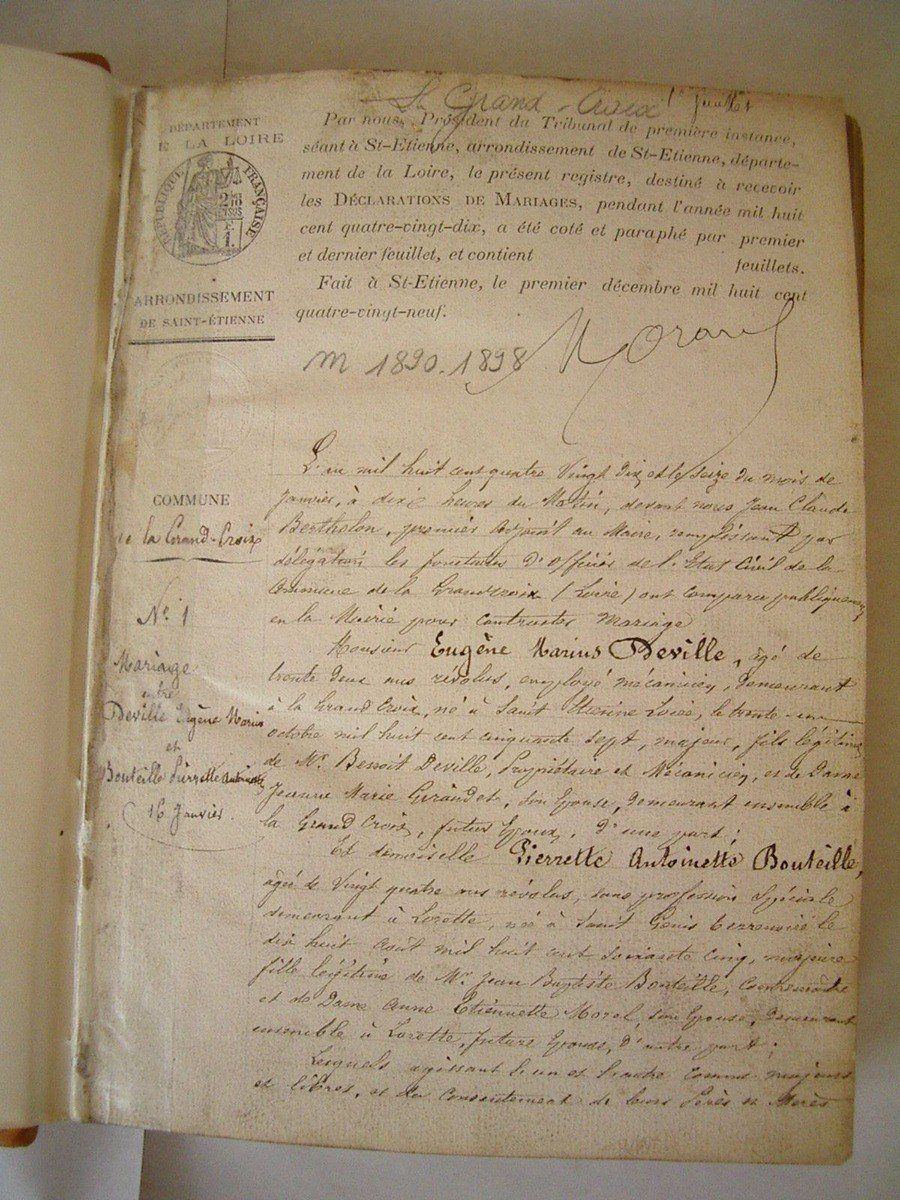 La Grand-Croix
1er Juillet
DÉPARTEMENT
E LA LOIRE
RÉPUBLIQUE FRANÇAISE
ARRONDISSEMENT
DE SAINT-ÉTIENNE
Par nous, Président du Tribunal de première instance,
séant à St-Etienne, arrondissement de St-Etienne, départe-
ment de la Loire, le présent registre, destiné à recevoir
les DÉCLARATIONS DE MARIAGES, pendant l'année mil huit
cent quatre-vingt-dix, a été coté et paraphé par premier
et dernier feuillet, et contient feuillets.
Fait à St-Etienne, le premier décembre mil huit cent
quatre-vingt-neuf.
M 1890.1898
COMMUNE
de la Grand-Croix
N° 1
Mariage
entre
Deville Eugène Marius
et
Bouteille Pierrette Antoinette
16 Janvier.
L'an mil huit cent quatre Vingt dix et le seize du mois de
janvier, à dix heures du Matin, devant nous Jean Claude
Berthelon, premier Adjoint au Maire, remplissant par
délégation les fonctions d'Officier de l'Etat Civil de la
Commune de la Grandcroix (Loire) ont comparu publiquement
en la Mairie pour contracter Mariage
Monsieur Eugène Marius Deville, âgé de
trente deux ans révolus, employé mécanicien, demeurant
à la Grand Croix, né à Saint Etienne Loire, le trente-un
octobre mil huit cent cinquante sept, majeur, fils légitime
de Mr. Benoit Deville, Propriétaire et Mécanicien, et de Dame
Jeanne Marie Giraudet, son Epouse, demeurant ensemble à
la Grand Croix, futur Epoux, d'une part;
Et demoiselle Pierrette Antoinette Bouteille,
âgée de Vingt quatre ans révolus, sans profession Spéciale
demeurant à Lorette, né à Saint Genis Terrenoire le
dix huit août mil huit cent soixante cinq, majeure
fille légitime de Mr. Jean Baptiste Bouteille,
et de Dame Anne Etiennette Morel, son Epouse, demeurant
ensemble à Lorette, future Epouse, d'autre part;
Lesquels agissant l'un et l'autre comme majeurs
et libres, et du consentement de leurs Pères et Mères